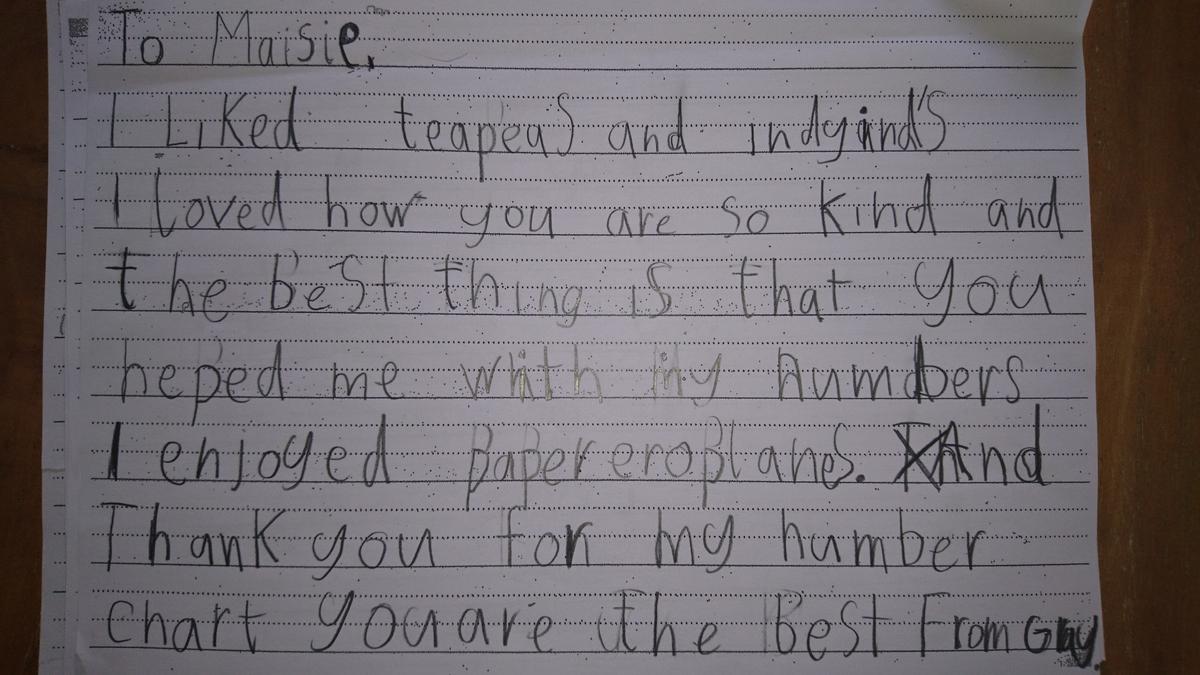 To Maisie,
I Liked teapeas and indyind's
I loved how you are so kind and
the best thing is that you
heped me whith my numbers
I enjoyed paper eroplanes. And
Thank you for my number
chart you are the best From